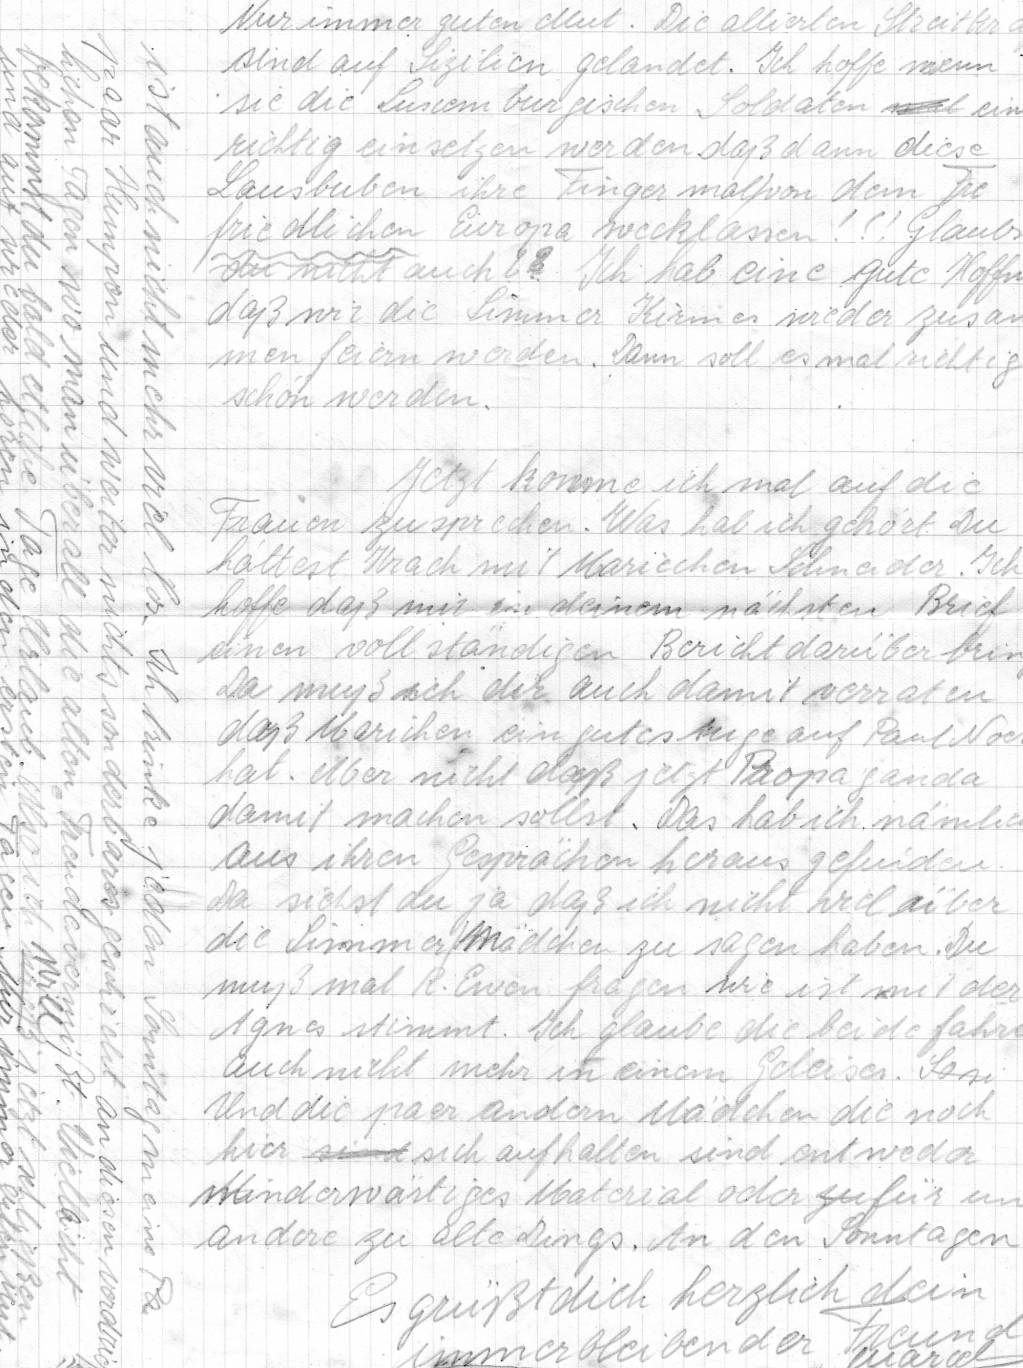 Nur immer guten Mut. Die allierten Streitkrä
sind auf Sizilien gelandet. Ich hoffe wenn
sie die Luxemburgischen Soldaten ein
richtig einsetzen werden daß dann diese
Lausbuben ihre Finger mal von dem Fre
friedlichen Europa wecklassen!!! Glaubs
du nicht auch?? Ich hab eine gute Hoffn
daß wir die Simmer Kirmes wieder zusam
men feiern werden. Dann soll es mal richtig
schön werden.
Jetzt komme ich mal auf die
Frauen zusprechen. Was hab ich gehört. Du
hättest Krach mit Mariechen Schneider. Ich
hoffe daß mir in deinem nächsten Brief
einen vollständigen Bericht darüber brin
Da muß ich dir auch damit verraten
daß Marichen ein gutes Auge auf Paul
hat. Aber nicht daß jetzt Propaganda
damit machen sollst. Das hab ich nämlic
aus ihren Gesprächen heraus gefunden.
Da siehst du ja daß ich nicht viel über
die Simmer Mädchen zu sagen haben. Du
muß mal R. Ewen fragen wie ist mit der
Agnes stimmt. Ich glaube die beide fahre
auch nicht mehr in einem Geleiser.
Und die paar andern Mädchen die noch
hier sind sich aufhalten sind entweder
Minderwärtiges Material oder zu für un
andere zu alte Dings. An den Sonntagen
Es grüßt dich herzlich dein
immerbleibender Freund
Marcel
ist auch nicht mehr viel los. Ich trinke jeden Sonntag meine Pa
paar Humpen und weiter nichts sonderbares geschieht an diesen
schon Tagen wo man überall die alten Freunde vermißt. Vielleicht
bekommst du bald etliche Tage Urlaub. Aber ich will jetzt schließen
und auf wieder hören in den ersten Tagen. Hier immer